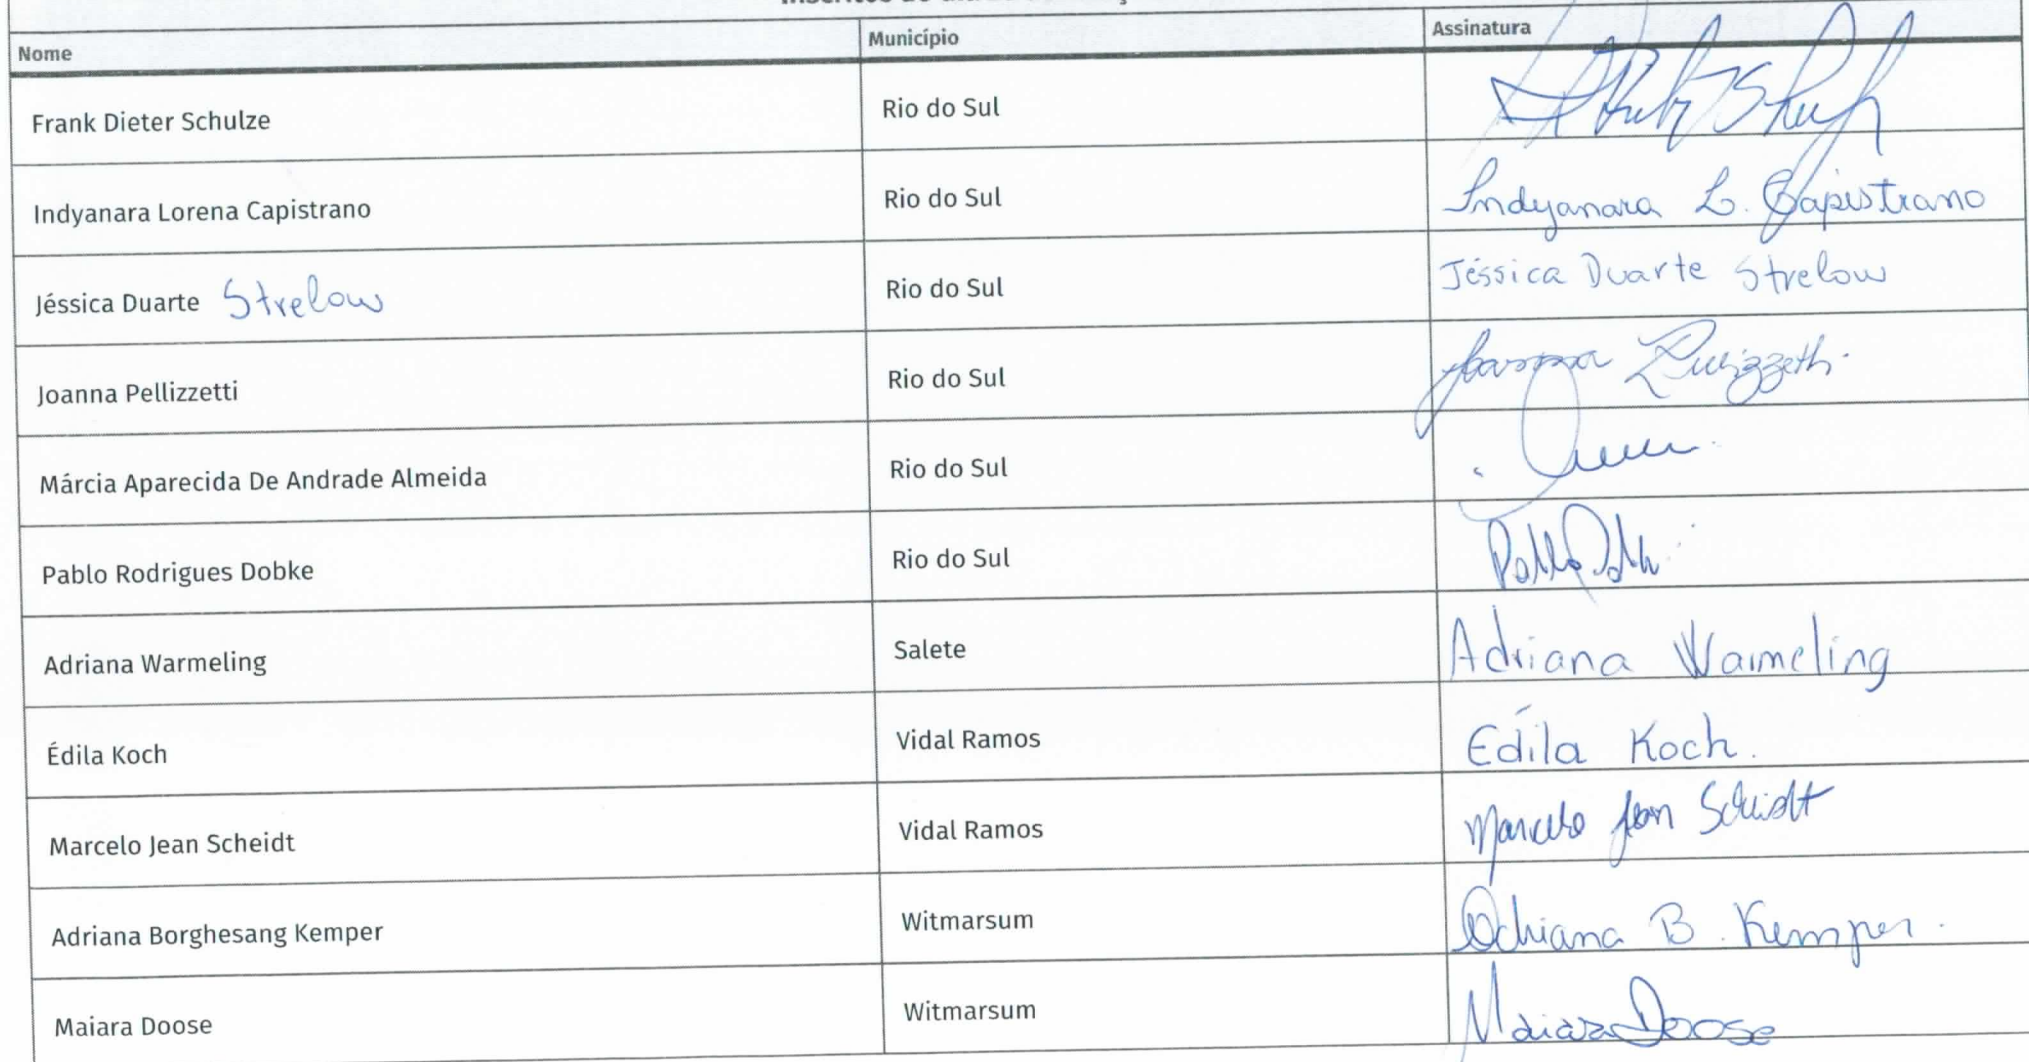 Nome Município Assinatura
Frank Dieter Schulze Rio do Sul
Indyanara Lorena Capistrano Rio do Sul Indyanara L. Capistrano
Jéssica Duarte Strelow Rio do Sul Jéssica Duarte Strelow
Joanna Pellizzetti Rio do Sul Joanna
Márcia Aparecida De Andrade Almeida Rio do Sul
Pablo Rodrigues Dobke Rio do Sul Pablo
Adriana Warmeling Salete Adriana Warmeling
Édila Koch Vidal Ramos Édila Koch.
Marcelo Jean Scheidt Vidal Ramos Marcelo Jean Scheidt
Adriana Borghesang Kemper Witmarsum Adriana B. Kemper.
Maiara Doose Witmarsum Maiara Doose